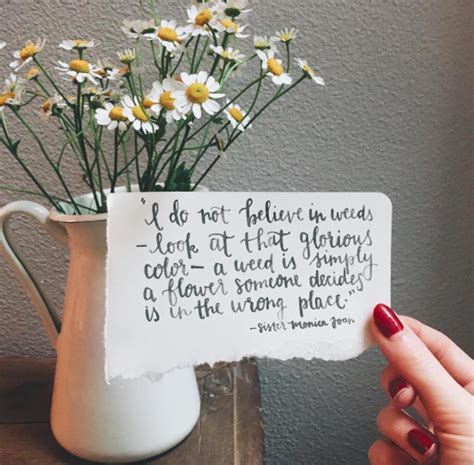 "I do not believe in weeds
-look at that glorious
color- a weed is simply
a flower someone decides
is in the wrong place."
-Sister Monica Joan